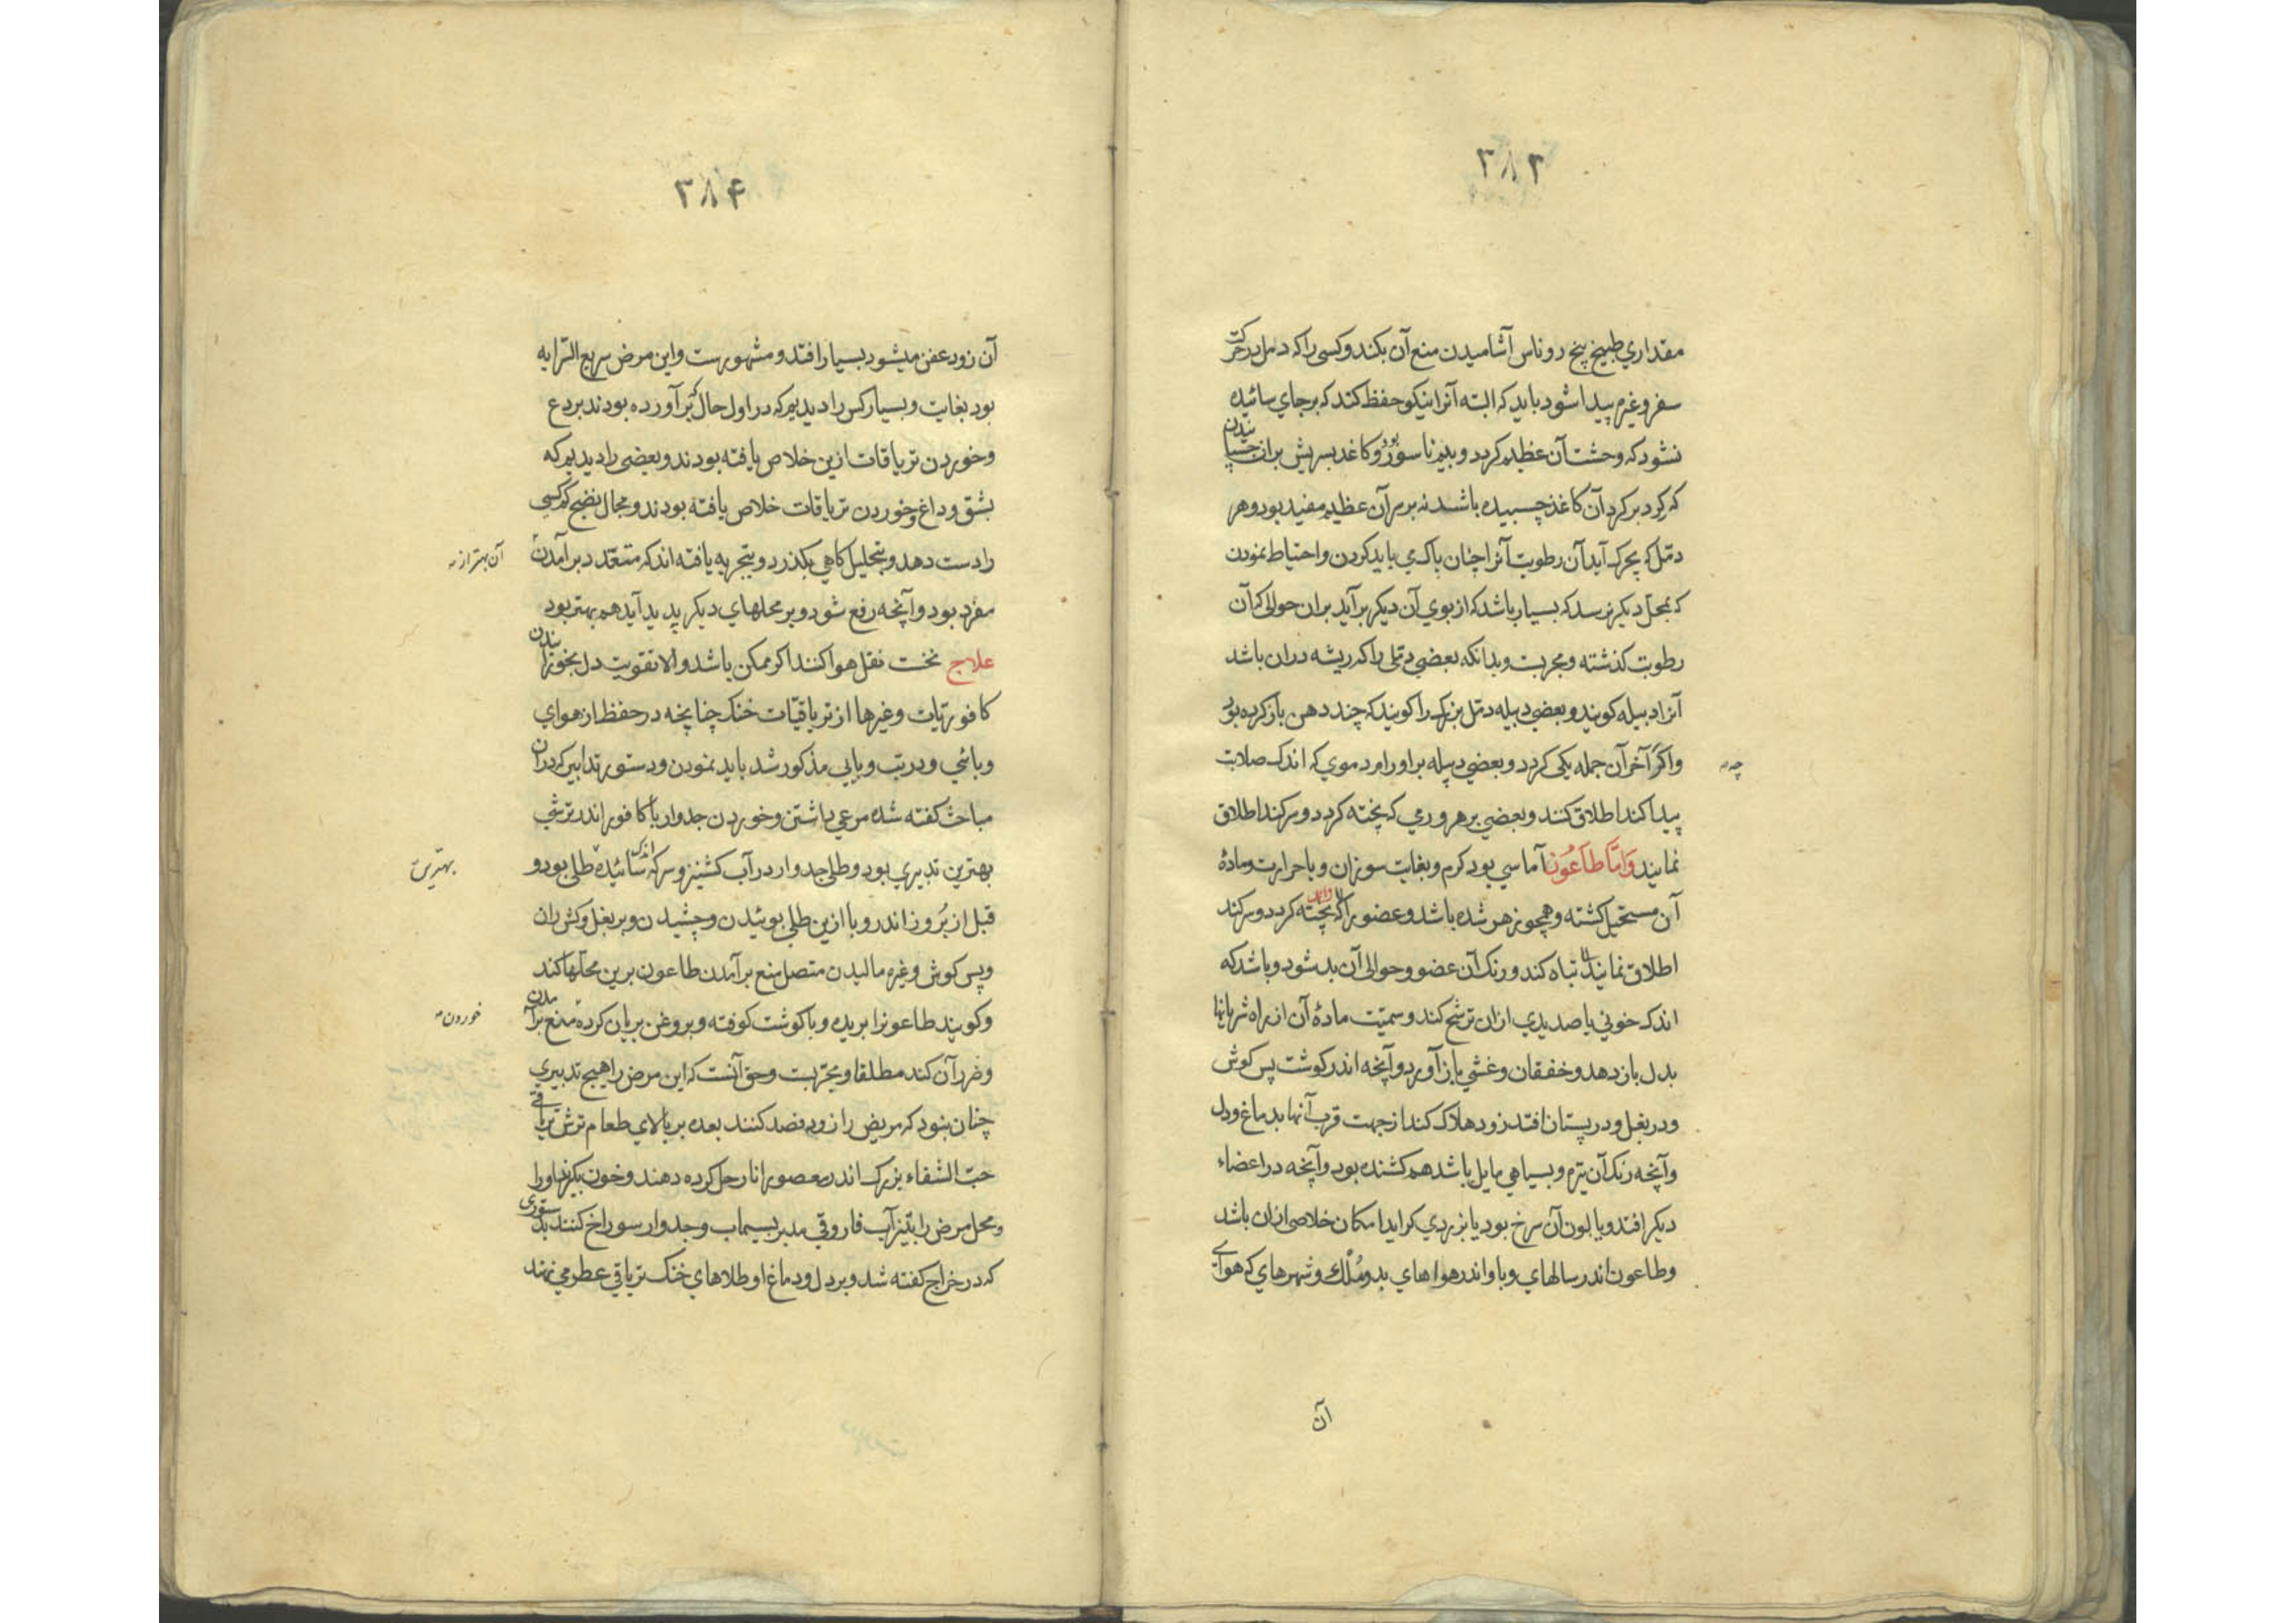 ۳۸۳
مقداري طبيخ بيخ روناس آشاميدن منع آن بكند وكسى را كه دمل در حركت
سفر وغيره پيدا شود بايد كه البته آنرا نيكو حفظ كند كه بر جاي سائيده
نشود كه وحشت آن عظيم كردد و بيم ناسور بود و كاغذ بسريش بران چسپانيدن
كه كرد بر كرد آن كاغذ چسبيده باشد نه بر سر آن عظيم مفيد بود و هر
دمل كه بحركت آيد آن رطوبت آنرا چنان پاك مي بايد كردن و احتياط نمودن
كه بمحل ديكر نرسد كه بسيار باشد كه از بوي آن ديكر برآيد بران حوالي كه آن
رطوبت كذشته و مجربست و بدانكه بعضي دملى را كه ريشه دران باشد
آنرا دبيله كويند و بعضي دبيله دمل بزرك را كويند كه چند دهن باز كرده بود
و اكر آخر آن جمله يكى كردد و بعضي دبيله بر اورام دموي كه اندك صلابت
چه
پيدا كند اطلاق كنند و بعضي بر هر ورمي كه پخته كردد و سر كند اطلاق
نمايند وَامّا طاعُون آماسي بود كرم و بغايت سوزان و با حرارت و مادۀ
آن مستحيل كشته و همچو زهر شده باشد و عضو را كه پخته كردد و سر كند
اطلاق نمايند تباه كند و رنك آن عضو و حوالى آن بد شود و باشد كه
اندك خوني يا صديدي ازان ترشح كند و سميّت مادۀ آن از راه شريانها
بدل باز دهد و خفقان و غشي باز آورد و آنچه اندر كوشت پس كوش
و در بغل و در پستان افتد زود هلاك كند از جهت قرب آنها بدماغ و دل
و آنچه رنك آن تيره و بسياهي مايل باشد هم كشنده بود و آنچه در اعضاء
ديكر افتد و يا لون آن سرخ بود يا بزردي كرايد امكان خلاصي ازان باشد
و طاعون اندر سالهاي وبا و اندر هواهاي بد و مُلك و شهرهاي كه هواي
آن
۳۸۴
آن زود عفن ميشود بسيار افتد و مشهورست و اين مرض سريع السرايه
بود بغايت و بسيار كس را ديديم كه در اول حال كه برآورده بودند بردع
و خوردن ترياقات ازين خلاص يافته بودند و بعضى را ديديم كه
بشق و داغ و خوردن ترياقات خلاص يافته بودند و مجال نضج كم كسى
را دست دهد و بتحليل كاهي بكذرد و بتجربه يافته اند كه متعدد برآمدن
آن بهتر از
مفرد بود و آنچه رفع شود و بر محلهاي ديكر پديد آيد هم بهتر بود
علاج نخست نقل هوا كنند اكر ممكن باشد و الا تقويت دل بخورانيدن
كافوريات و غيرها از ترياقيّات خنك چنانچه در حفظ از هواي
وبائي و در تب وبايي مذكور شد بايد نمودن و دستور تدابير كه دران
مباحث كفته شده مرعي داشتن و خوردن جدوار با كافور اندر ترشي
بهترين تدبيري بود و طلي جدوار در آب كشنيز و سركه اندك سائيده طلى بود و
بهترين
قبل از بُروز اندر وبا ازين طلى بوئيدن و چشيدن و بر بغل و كش ران
و پس كوش و غيره ماليدن متصل منع برآمدن طاعون برين محلها كند
و كويند طاعونرا بريده و با كوشت كوفته و بروغن بريان كرده منع برآمدن
خوردن
و ضرر آن كند مطلقا و مجربست و حق آنست كه اين مرض را هيچ تدبيري
چنان نبود كه مريض را زود فصد كنند بعده بر بالاي طعام ترش ترياقى
حبّ الشفاء بزرك اندر معصور انار حل كرده دهند و خون بكيرند او را
و محل مرض را بتيزآب فاروقي مدبر بسيماب و جدوار سوراخ كنند بدستوري
كه در خراج كفته شد و بر دل و دماغ او طلاهاي خنك ترياقي عطر مي نهند